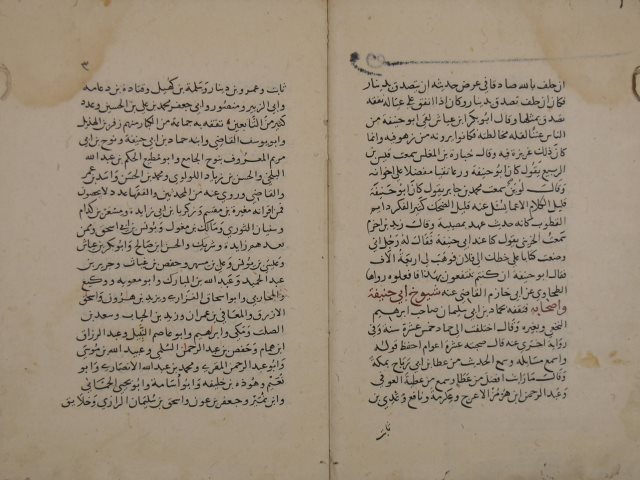 ان حلف بالله صادقا في عرض حديثه ان يتصدق بدينار
فكان ان حلف تصدق بدينار وكان اذا انفق على عياله نفقة
تصدق بمثلها وقال ابو بكر ابن عياش لقي ابو حنيفة من
الناس عنتا لقلة مخالطته فكانوا يرونه من زهو فيه وانما
كان ذلك غريزة فيه وقال جبارة بن المغلس سمعت قيس بن
الربيع يقول كان ابو حنيفة ورعا تقيا مفضلا على اخوانه
وقال لوين سمعت محمد بن جابر يقول كان ابو حنيفة
قليل الكلام الا بما يسئل عنه قليل الضحك كثير الفكر دايم
القطوب كانه حديث عهد بمصيبة وقال زيد بن اخزم
سمعت الخريبي يقول كنا عند ابي حنيفة فقال له رجل اني
وضعت كتابا على خطك الى فلان فوهب لي اربعة الاف
فقال ابو حنيفة ان كنتم تنتفعون بهذا فافعلوه رواها
الطحاوي عن ابي خازم القاضي عنه شيوخ ابي حنيفة
واصحابه تفقه بحماد بن ابي سليمان صاحب ابرهيم
النخعي وبغيره وقال اختلفت الى حماد خمس عشرة سنة وفي
رواية اخرى عنه قال صحبته عشرة اعوام احفظ قوله
واسمع مسايله وسمع الحديث من عطا بن ابي رباح بمكة
وقال ما رايت افضل من عطا وسمع من عطية العوفي
وعبد الرحمن ابن هرمز الاعرج وعكرمة ونافع وعدي بن
ثابت وعمرو بن دينار وسلمة بن كهيل وقتادة بن دعامة
وابي الزبير ومنصور وابي جعفر محمد بن علي بن الحسين وعدد
كثير من التابعين تفقه به جماعة من الكبار منهم زفر بن الهذيل
وابو يوسف القاضي وابنه حماد بن ابي حنيفة ونوح بن ابي
مريم المعروف بنوح الجامع وابو مطيع الحكم بن عبد الله
البلخي والحسن بن زياد اللولوي ومحمد بن الحسن واسد بن عمر
والقاضي وروى عنه من المحدثين والفقهاء عدة لا يحصون
فمن اقرانه مغيرة بن مقسم وزكريا بن ابي زايدة ومسعر بن كدام
وسفيان الثوري ومالك بن مغول ويونس بن ابي اسحق وممن
بعدهم زايدة وشريك والحسن بن صالح وابو بكر بن عياش
وعيسى بن يونس وعلي بن مسهر وحفص بن غياث وجرير بن
عبد الحميد وعبد الله بن المبارك وابو معوية ووكيع
والمحاربي وابو اسحاق الفزاري ويزيد بن هرون واسحق
الازرق والمعافى بن عمران وزيد بن الحباب وسعد بن
الصلت ومكي بن ابراهيم وابو عاصم النبيل وعبد الرزاق
ابن همام وحفص بن عبد الرحمن السلمي وعبيد الله بن موسى
وابو عبد الرحمن المقرئ ومحمد بن عبد الله الانصاري وابو
نعيم وهوذة بن خليفة وابو اسامة وابو يحيى الحماني
وابن نمير وجعفر بن عون واسحق بن سليمان الرازي وخلايق